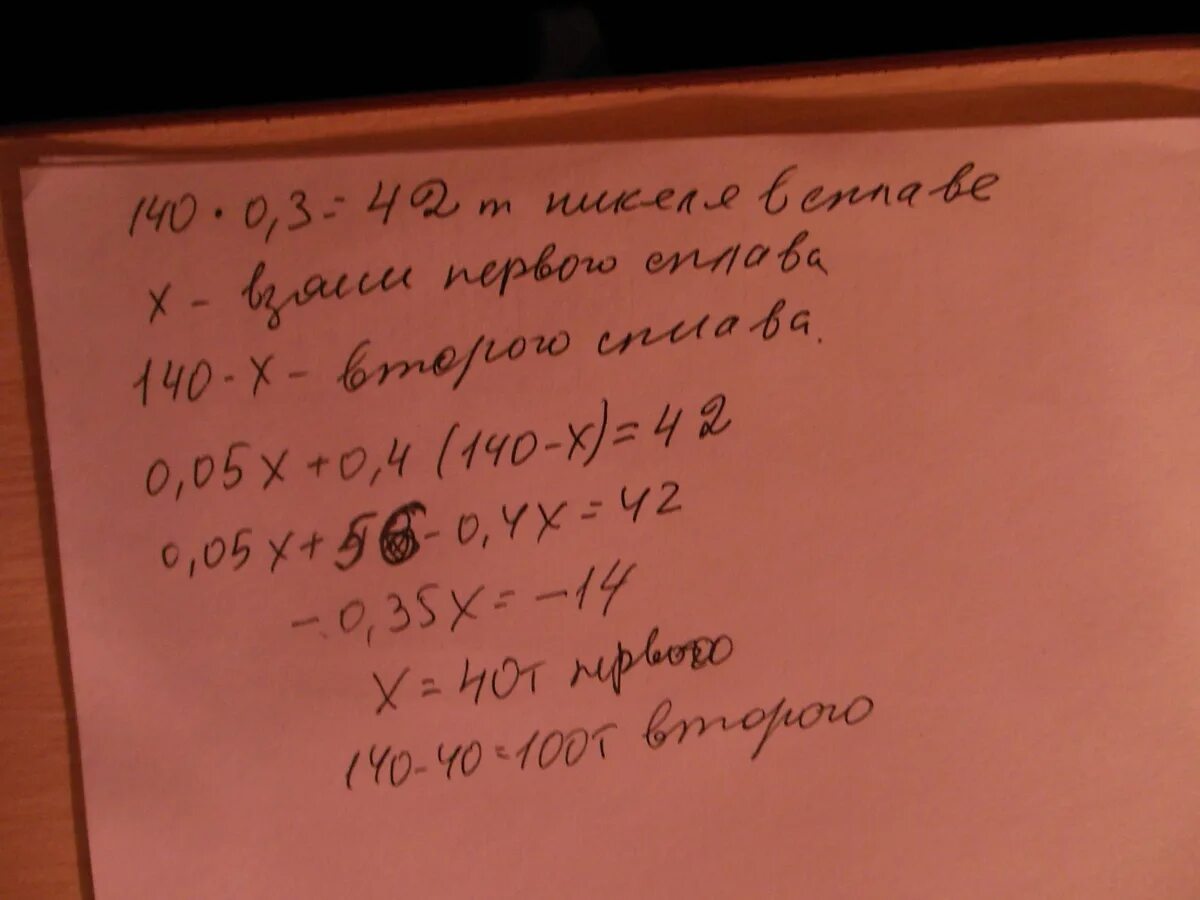 140 · 0,3 = 42 т никеля в сплаве
х - взяли первого сплава
140 - х - второго сплава.
0,05х + 0,4 (140 - х) = 42
0,05х + 56 - 0,4х = 42
- 0,35х = - 14
х = 40т первого
140 - 40 = 100т второго